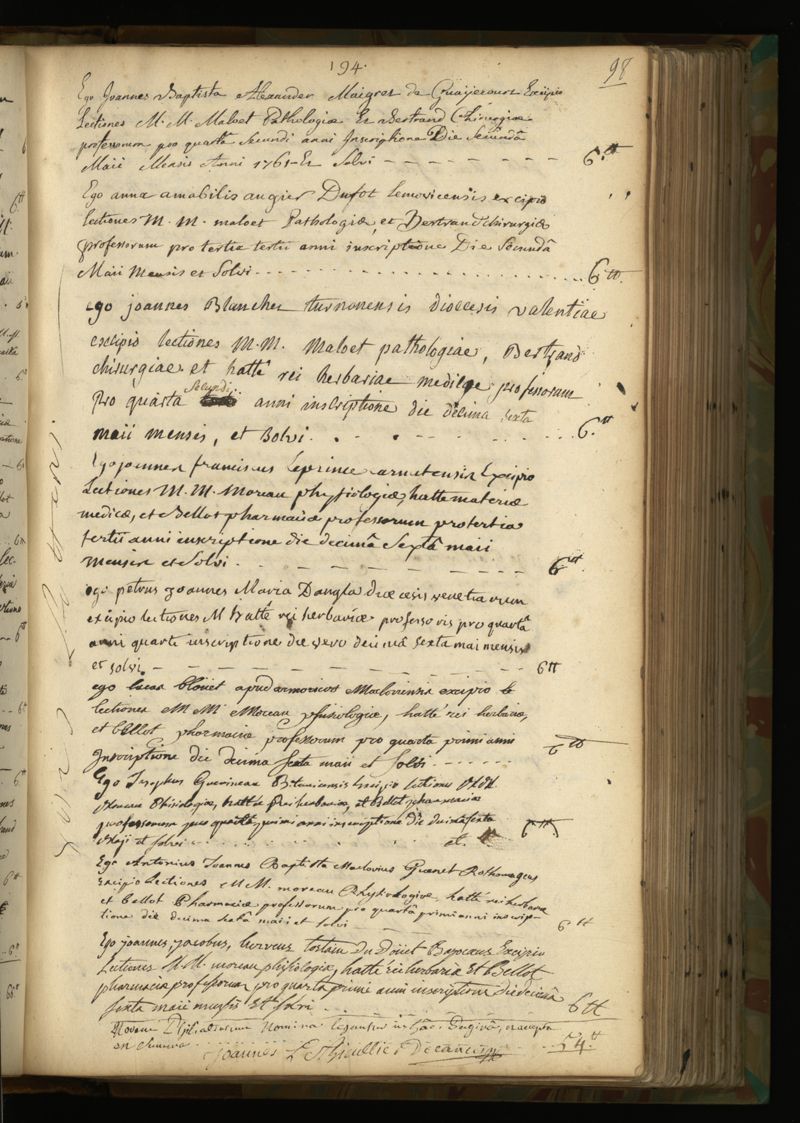 194.
98
Ego Joannes Baptista Alexander Maigret de Excipio
Lectiones M. M. Maloet Pathologiæ Et Bertrand Chirurgiæ
professorum pro quarta Secundi anni Inscriptione Die Secundâ
Maii Mensis Anni 1761 Et Solvi 6.tt
Ego anna amabilis augier Dufot lemovicensis excipio
lectiones M. M. maloet Pathologiæ, et Bertrand chirurgiæ
professorum pro tertia tertii anni inscriptione Die Secundâ
Maii Mensis et Solvi 6tt.
Ego joannes Blanchet turnonensis diœcesis valentiae
excipio lectiones M. M. Maloet pathologiae, Bertrand
chirurgiae et hatté rei herbariae medicæ professorum
pro quarta Secundi anni inscriptione die decima sexta
maii mensis, et solvi. 6.tt
Ego joannes franciscus Leprince Excipio
Lectiones M. M. Moreau physiologiæ, hatte materiæ
medicæ, et Bellot pharmaciæ professorum pro tertia
tertii anni inscriptione die decimâ Sextâ maii
mensis et Solvi. 6tt
ego petrus joannes Maria Dangla diœcesis
excipio lectiones M hatté rei herbariæ professoris pro quartâ
anni quarti inscriptione die vero decimâ sexta maii mensis
et solvi. 6tt
ego Lucas Macloviensis excipio
lectiones M M Moreau phisiologiæ, hatté rei herbariæ,
et bellot pharmaciæ professorum pro quarta primi anni
Inscriptione die decima sexta maii et Solvi. 6tt
Ego Josephus Guerineau excipio lectiones M.M.
Moreau Phisiologiæ, hatté Rei herbariæ, et Bellot pharmaciæ
professorum pro quartâ, primi anni inscriptione die decima sexta
Maji et solvi 6tt
Ego Antonius Joannes Baptista Maclovius Guenet Rothomagæus
Excipio Lectiones M M. moreau Physiologiæ, hatté rei herbariæ
et bellot Pharmaciæ professorum pro quartâ primi anni inscrip-
tione die decima sextâ maii et solvi 6tt
Ego joannes, jacobus, herveus tostain Du Douet Excipio
Lectiones M M. moreau phisiologiæ, hatté Rei herbariæ Et Bellot
pharmaciæ professorum pro quarta primi anni inscriptione die decimâ
sexta maii mensis Et solvi 6tt
Novem Philiatrorum Nomina leguntur in hâc Paginâ,
en Summa 54.tt
Joannes Le Thieullier Decanus